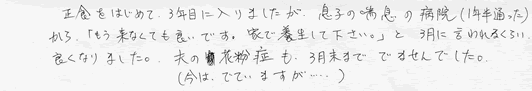 正食をはじめて、3年目に入りましたが、息子の喘息の病院(1年半通った)
から、「もう来なくても良いです。家で養生して下さい。」と、3月に言われるくらい
良くなりました。夫の花粉症も、3月末まででませんでした。
(今は、でていますが……)